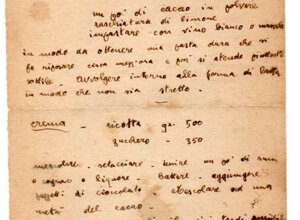 un po' di cacao in polvere
raschiatura di limone
impastare con vino bianco o marsala
in modo da ottenere una pasta dura che si
fa riposare circa mezzora e poi si stende piuttosto
sottile. Avvolgere intorno alla forma di latta
in modo che non sia stretto.
crema - ricotta gr. 500
zucchero - 350
mescolare. setacciare. unire un po' di rum
o cognac o liquore. Battere. aggiungere
pezzetti di cioccolato. Mescolare ad una
metà del cacao.